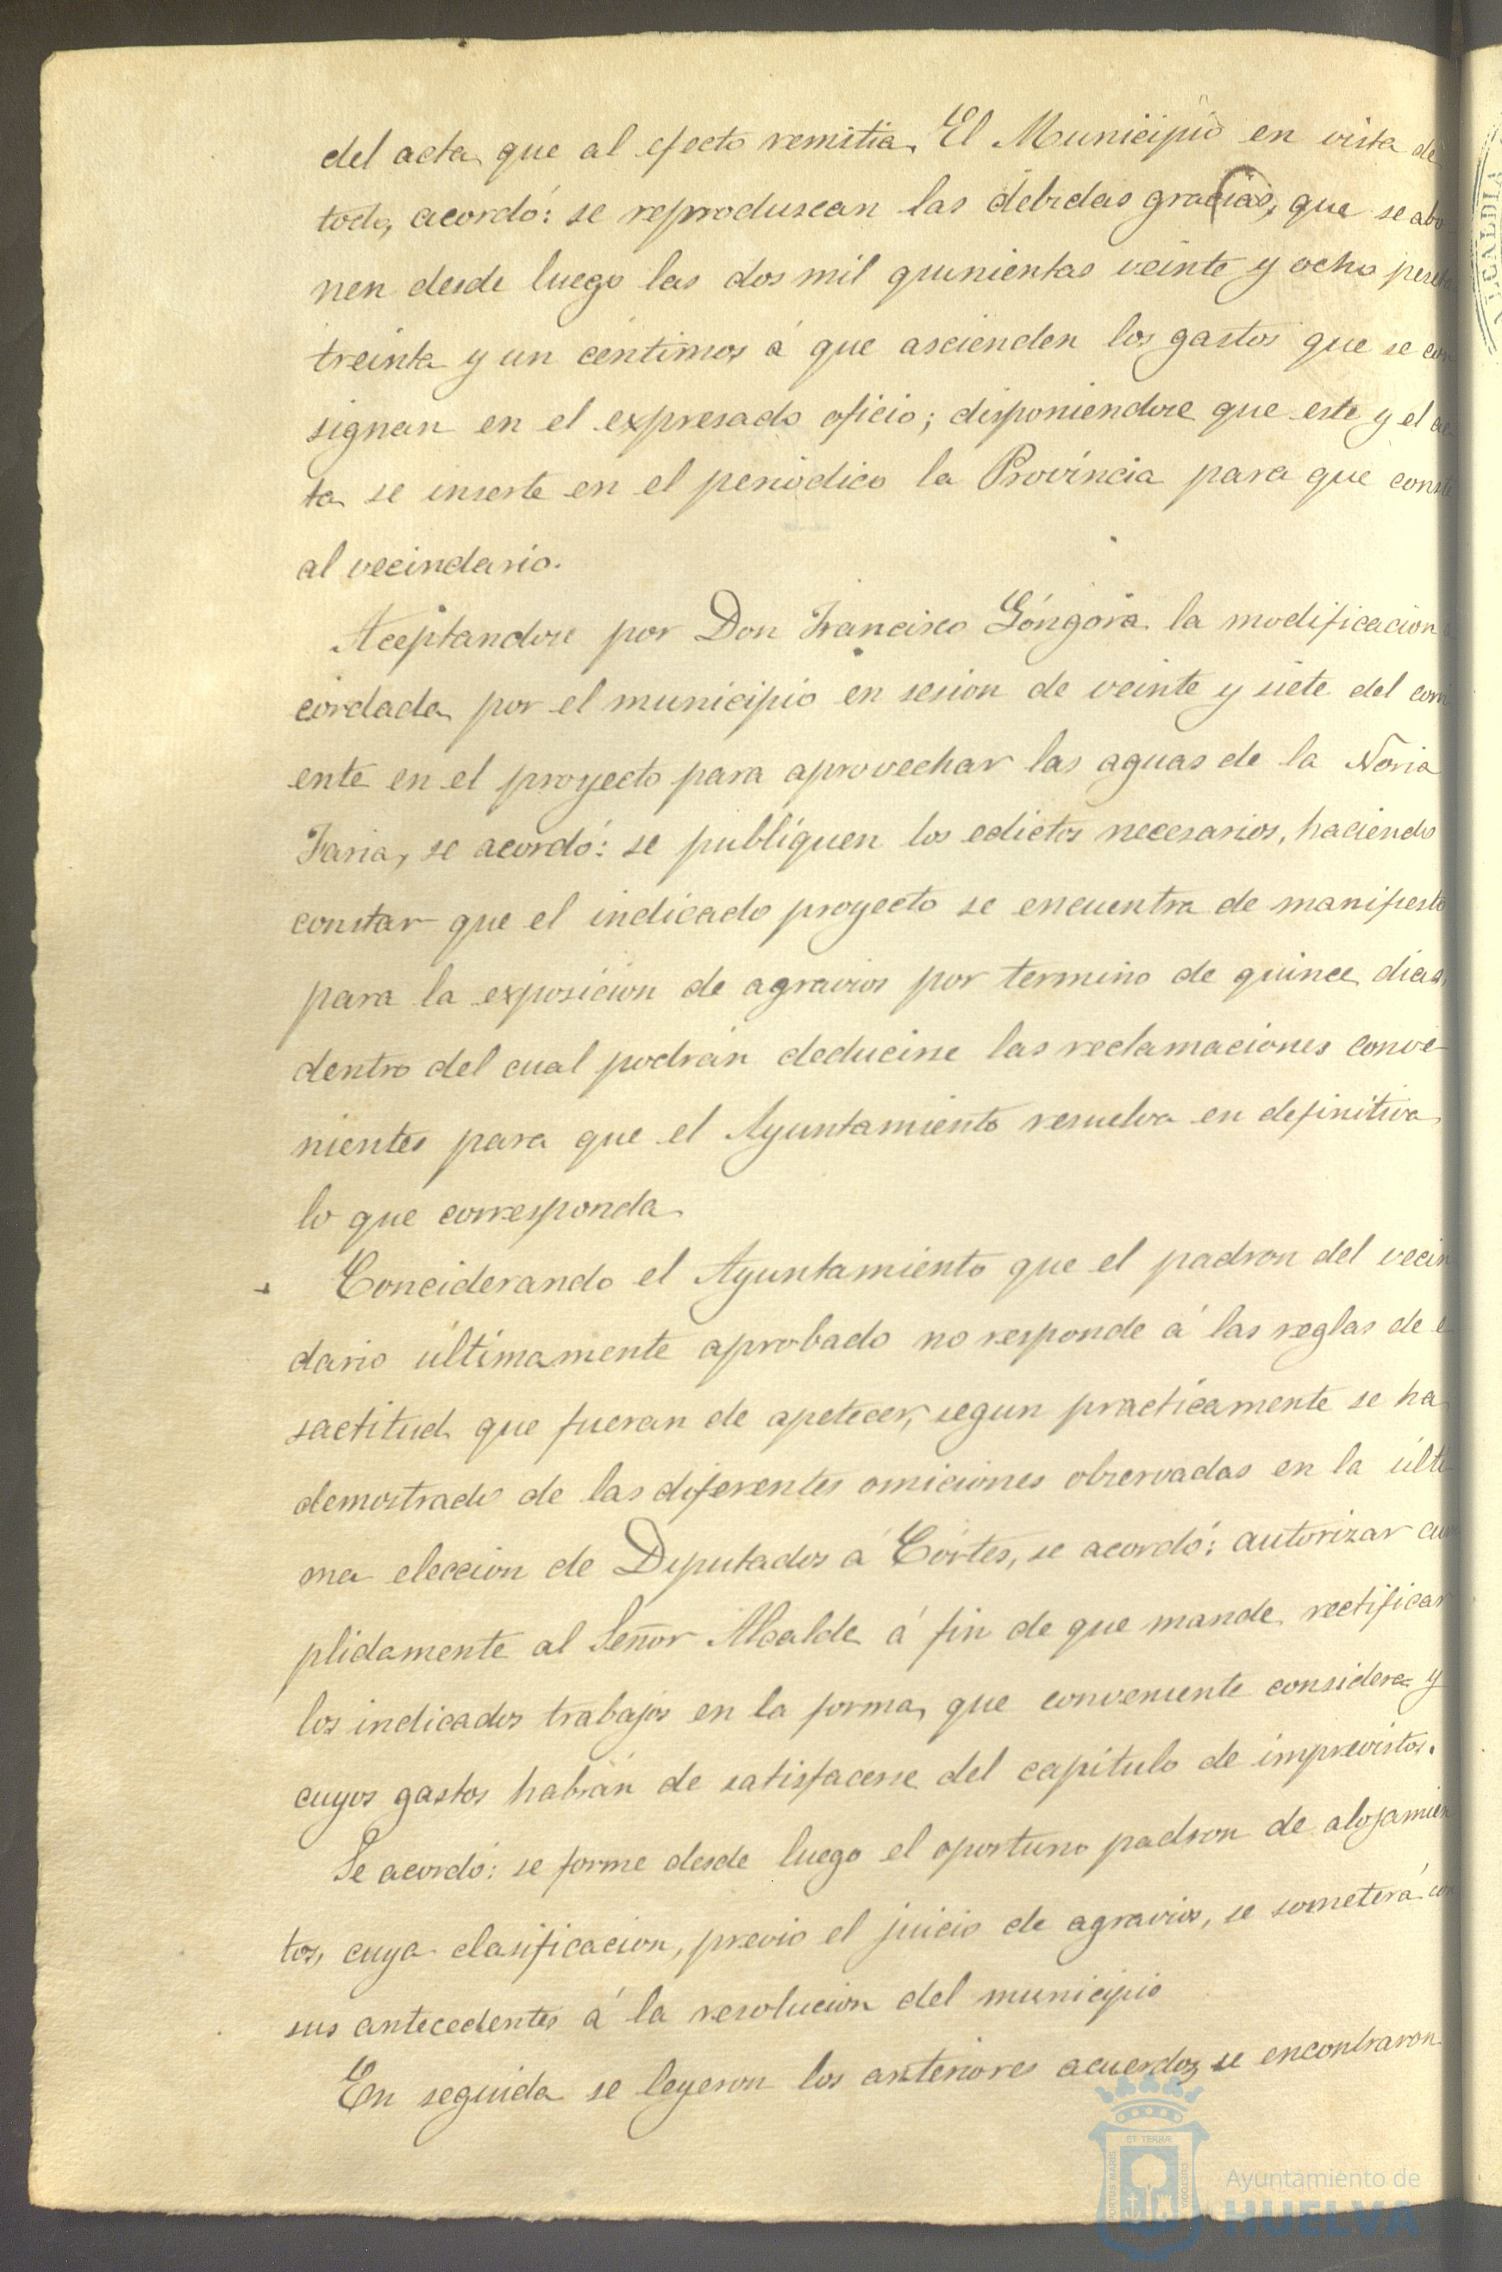 del acta que al efecto remitia. El Municipio en vista de
todo, acordó: se reproduscan las debidas gracias, que se abo
nen desde luego las dos mil quinientas veinte y ocho peseta
treinta y un céntimos á que ascienden los gastos que se con
signan en el expresado oficio; disponiendose que este y el ac
ta se inserte en el periódico la Provincia para que conste
al vecindario.
Aceptandose por Don Francisco Góngora la modificacion a
cordada por el municipio en sesion de veinte y siete del corri
ente en el proyecto para aprovechar las aguas de la Noria
Faria, se acordó: se publiquen los edictos necesarios, haciendo
constar que el indicado proyecto se encuentra de manifiesto
para la exposicion de agravios por termino de quince dias,
dentro del cual podrán deducirse las reclamaciones conve-
nientes para que el Ayuntamiento resuelva en definitiva
lo que corresponda.
Conciderando el Ayuntamiento que el padron del vecin
dario últimamente aprobado no responde á las reglas de e
sactitud que fueran de apetecer, segun practicamente se ha
demostrado de las diferentes omiciones observadas en la últi
ma eleccion de Diputados á Córtes, se acordó: autorizar cum
plidamente al Señor Alcalde á fin de que mande rectificar
los indicados trabajos en la forma que conveniente considera y
cuyos gastos habrán de satisfacerse del capítulo de imprevistos.
Se acordó: se forme desde luego el oportuno padron de alojamien
tos, cuya clasificacion, previo el juicio de agravios, se someterá con
sus antecedentes á la resolucion del municipio
En seguida se leyeron los anteriores acuerdos, se encontraron
ALCALDIA
ET TERRÆ
PORTUS MARIS
CUSTODIA
Ayuntamiento de
HUELVA